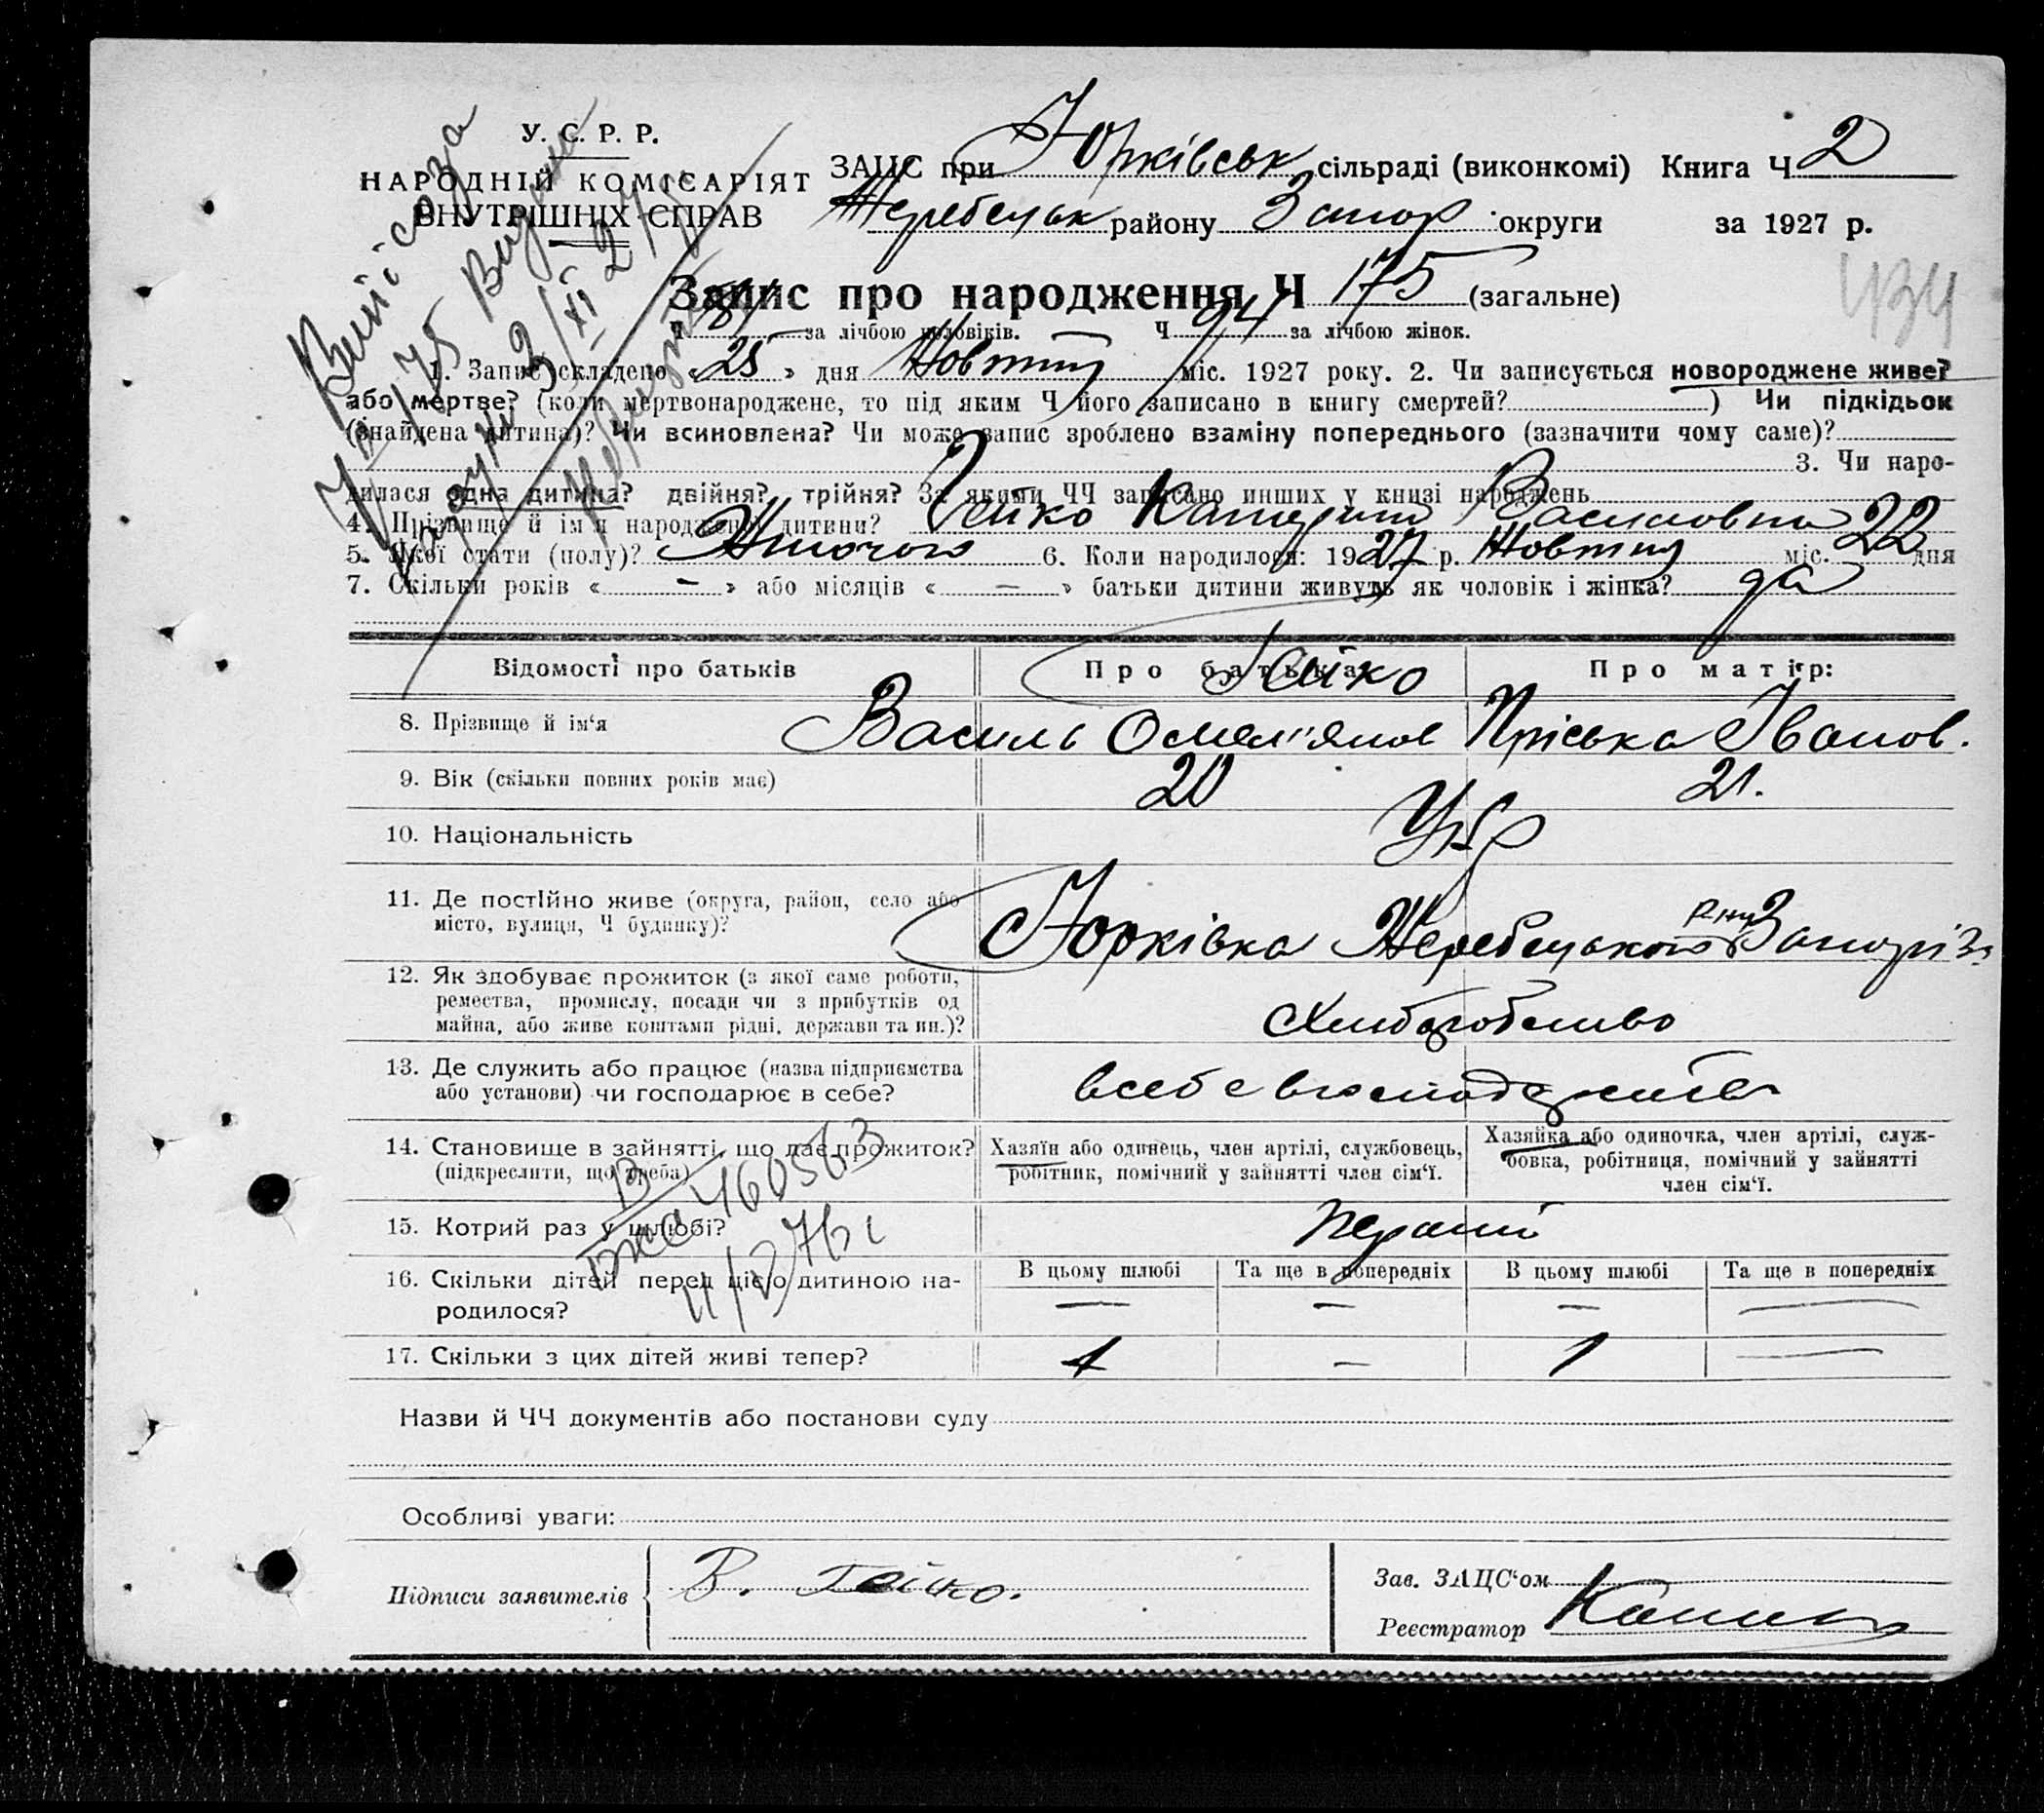 У. С. Р. Р.
НАРОДНІЙ КОМІСАРІЯТ
ВНУТРІШНІХ СПРАВ
ЗАЦС при Юрківськ сільраді (виконкомі) Книга Ч 2
Жеребецьк району Запор округи за 1927 р.
Запис про народження Ч 175 (загальне)
434
Ч 81 за лічбою чоловіків. Ч 94 за лічбою жінок.
1. Запис складено «25» дня Жовтня міс. 1927 року. 2. Чи записується новороджене живе?
або мертве? (коли мертвонароджене, то під яким Ч його записано в книгу смертей? ) Чи підкідьок
(знайдена дитина)? Чи всиновлена? Чи може запис зроблено взаміну попереднього (зазначити чому саме)?
3. Чи наро-
дилася одна дитина? двійня? трійня? За якими ЧЧ записано инших у книзі народжень
4. Прізвище й ім'я народженої дитини? Гейко Катерина Василовна
5. Якої стати (полу)? Жіночого 6. Коли народилося: 1927 р. Жовтня міс. 22 дня
7. Скільки років « — » або місяців « — » батьки дитини живуть як чоловік і жінка? да
Відомості про батьків Про батька Про матір:
Гейко
8. Прізвище й ім'я Василь Омельянов Пріська Іванов.
9. Вік (скільки повних років має) 20 21.
10. Національність Укр
11. Де постійно живе (округа, район, село або
місто, вулиця, Ч будинку)? с Юрківка Жеребецького р-ну Запоріз
12. Як здобуває прожиток (з якої саме роботи,
ремества, промислу, посади чи з прибутків од
майна, або живе коштами рідні, держави та ин.)?
Хліборобство
13. Де служить або працює (назва підприємства
або установи) чи господарює в себе?
в себе в господарстві
14. Становище в зайнятті, що дає прожиток?
(підкреслити, що треба)
Хазяїн або одинець, член артілі, службовець,
робітник, помічний у зайнятті член сім'ї.
Хазяйка або одиночка, член артілі, служ-
бовка, робітниця, помічний у зайнятті
член сім'ї.
460563
15. Котрий раз у шлюбі? Перший
11/2 76
16. Скільки дітей перед цією дитиною на-
родилося?
В цьому шлюбі Та ще в попередніх В цьому шлюбі Та ще в попередніх
— — — —
17. Скільки з цих дітей живі тепер? 1 — 1 —
Назви й ЧЧ документів або постанови суду
Особливі уваги:
Підписи заявителів В. Гейко.
Зав. ЗАЦС'ом
Реєстратор